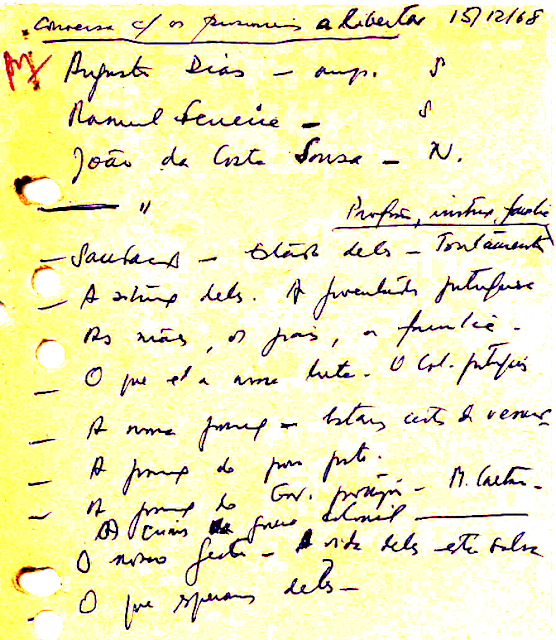 Conversa c/ os prisioneiros a libertar 15/12/68
Augusto Dias — S
Manuel — S
João da Costa Sousa — N.
— "
Profissão, família
— Saudação — Estado deles — Tratamento
— A deles. A juventude portuguesa
As mães, os pais, a família —
— O que é a nossa luta — O Col. português
— A nossa — Estamos certos de vencer
— A do povo port.
— A do Gov. português — M. Caetano —
Os da guerra colonial
O nosso gesto — A vida deles está salva
— O que esperamos deles —